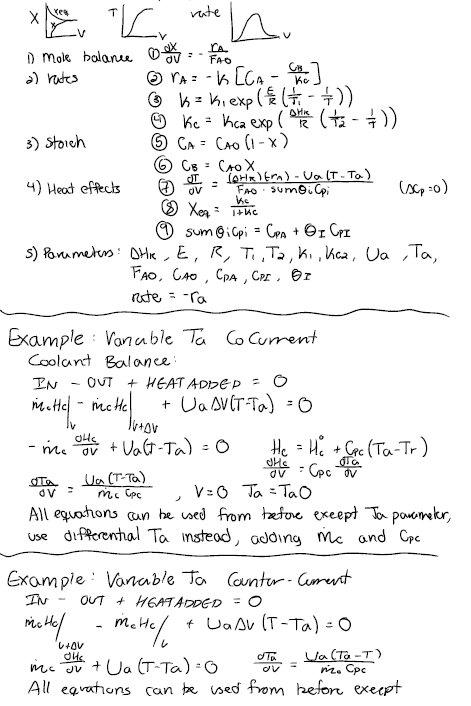 X Xeq X V T V rate V
1) Mole balance ① dX/dV = - rA/FAO
2) rates ② rA = -k [CA - CB/Kc]
③ k = k1 exp(E/R (1/T1 - 1/T))
④ Kc = Kc2 exp(ΔHR/R (1/T2 - 1/T))
3) Stoich ⑤ CA = CAO(1-X)
⑥ CB = CAO X
4) Heat effects ⑦ dT/dV = (ΔHR)(rA) - Ua(T-Ta) / FAO · sumΘiCpi (ΔCp=0)
⑧ Xeq = Kc/1+Kc
⑨ sumΘiCpi = CPA + ΘI CPI
5) Parameters: ΔHR, E, R, T1, T2, K1, Kc2, Ua, Ta,
FAO, CAO, CPA, CPI, ΘI
rate = -ra
Example: Variable Ta CoCurrent
Coolant Balance:
IN - OUT + HEAT ADDED = 0
ṁcHc|V - ṁcHc|V+ΔV + UaΔV(T-Ta) = 0
-ṁc dHc/dV + Ua(T-Ta) = 0 Hc = Hc° + Cpc(Ta-Tr)
dHc/dV = Cpc dTa/dV
dTa/dV = Ua(T-Ta)/ṁc Cpc , V=0 Ta=Tao
All equations can be used from before except Ta parameter,
use differential Ta instead, adding ṁc and Cpc
Example: Variable Ta Counter-Current
IN - OUT + HEAT ADDED = 0
ṁcHc/V+ΔV - ṁcHc/V + UaΔV(T-Ta) = 0
ṁc dHc/dV + Ua(T-Ta) = 0 dTa/dV = Ua(Ta-T)/ṁc Cpc
All equations can be used from before except